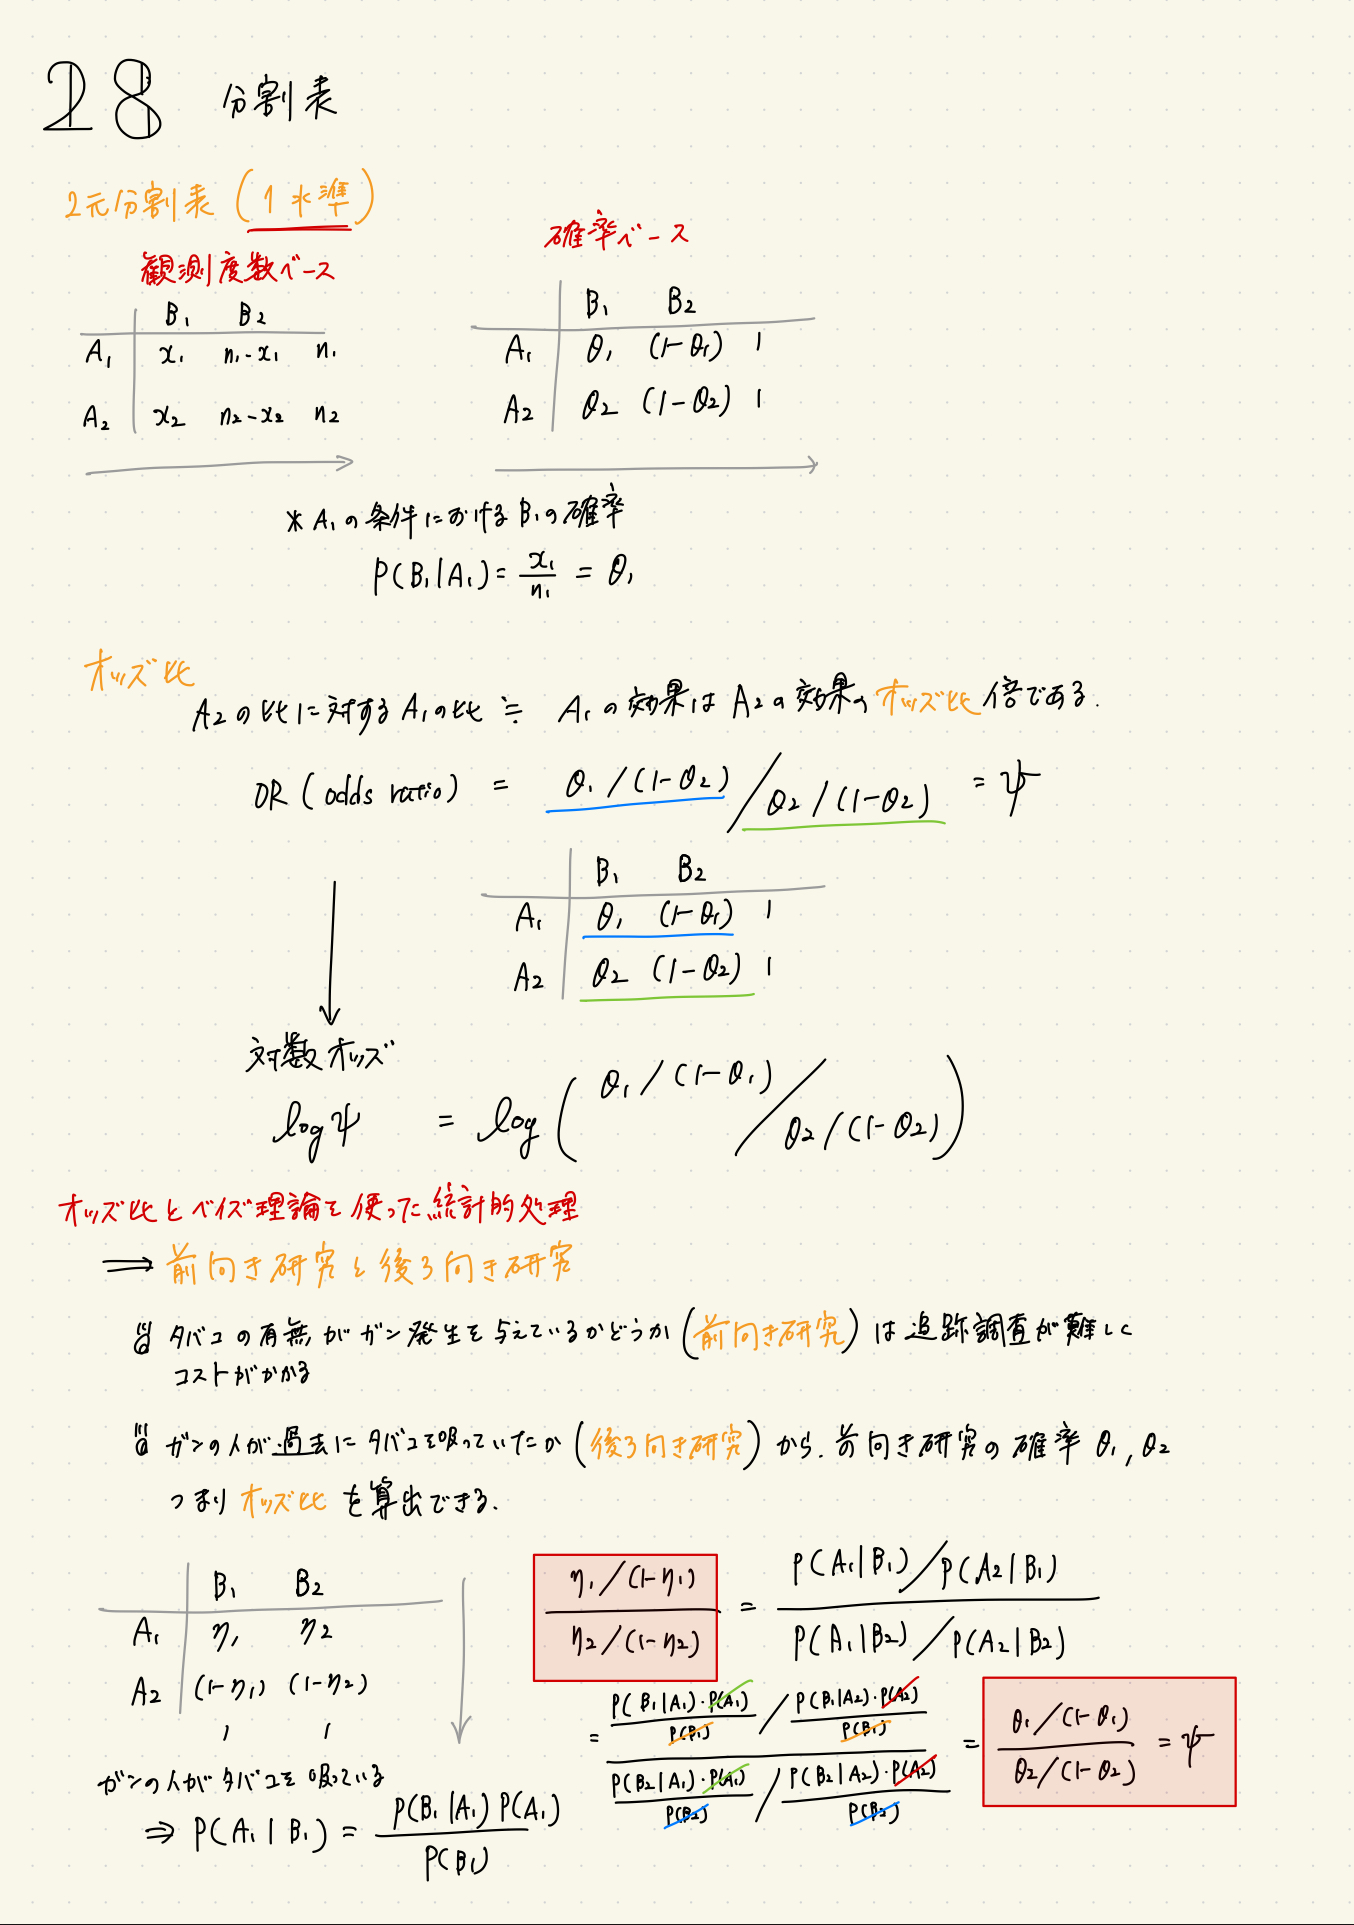 28 分割表
2元分割表 (1水準)
観測度数ベース
B₁ B₂
A₁ x₁ n₁-x₁ n₁
A₂ x₂ n₂-x₂ n₂
確率ベース
B₁ B₂
A₁ θ₁ (1-θ₁) 1
A₂ θ₂ (1-θ₂) 1
* A₁の条件におけるB₁の確率
P(B₁|A₁) = x₁/n₁ = θ₁
オッズ比
A₂の比に対するA₁の比 ≒ A₁の効果はA₂の効果のオッズ比倍である.
OR (odds ratio) = θ₁/(1-θ₂) / θ₂/(1-θ₂) = ψ
B₁ B₂
A₁ θ₁ (1-θ₁) 1
A₂ θ₂ (1-θ₂) 1
対数オッズ
log ψ = log ( θ₁/(1-θ₁) / θ₂/(1-θ₂) )
オッズ比とベイズ理論を使った統計的処理
⇒ 前向き研究と後ろ向き研究
タバコの有無がガン発生を与えているかどうか (前向き研究) は追跡調査が難しく
コストがかかる
ガンの人が過去にタバコを吸っていたか (後ろ向き研究) から. 前向き研究の確率 θ₁, θ₂
つまりオッズ比を算出できる.
B₁ B₂
A₁ η₁ η₂
A₂ (1-η₁) (1-η₂)
1 1
ガンの人がタバコを吸っている
⇒ P(A₁|B₁) = P(B₁|A₁) P(A₁) / P(B₁)
η₁/(1-η₁) / η₂/(1-η₂) = P(A₁|B₁)/P(A₂|B₁) / P(A₁|B₂)/P(A₂|B₂)
= P(B₁|A₁)·P(A₁)/P(B₁) / P(B₁|A₂)·P(A₂)/P(B₁)
P(B₂|A₁)·P(A₁)/P(B₂) / P(B₂|A₂)·P(A₂)/P(B₂)
= θ₁/(1-θ₁) / θ₂/(1-θ₂) = ψ